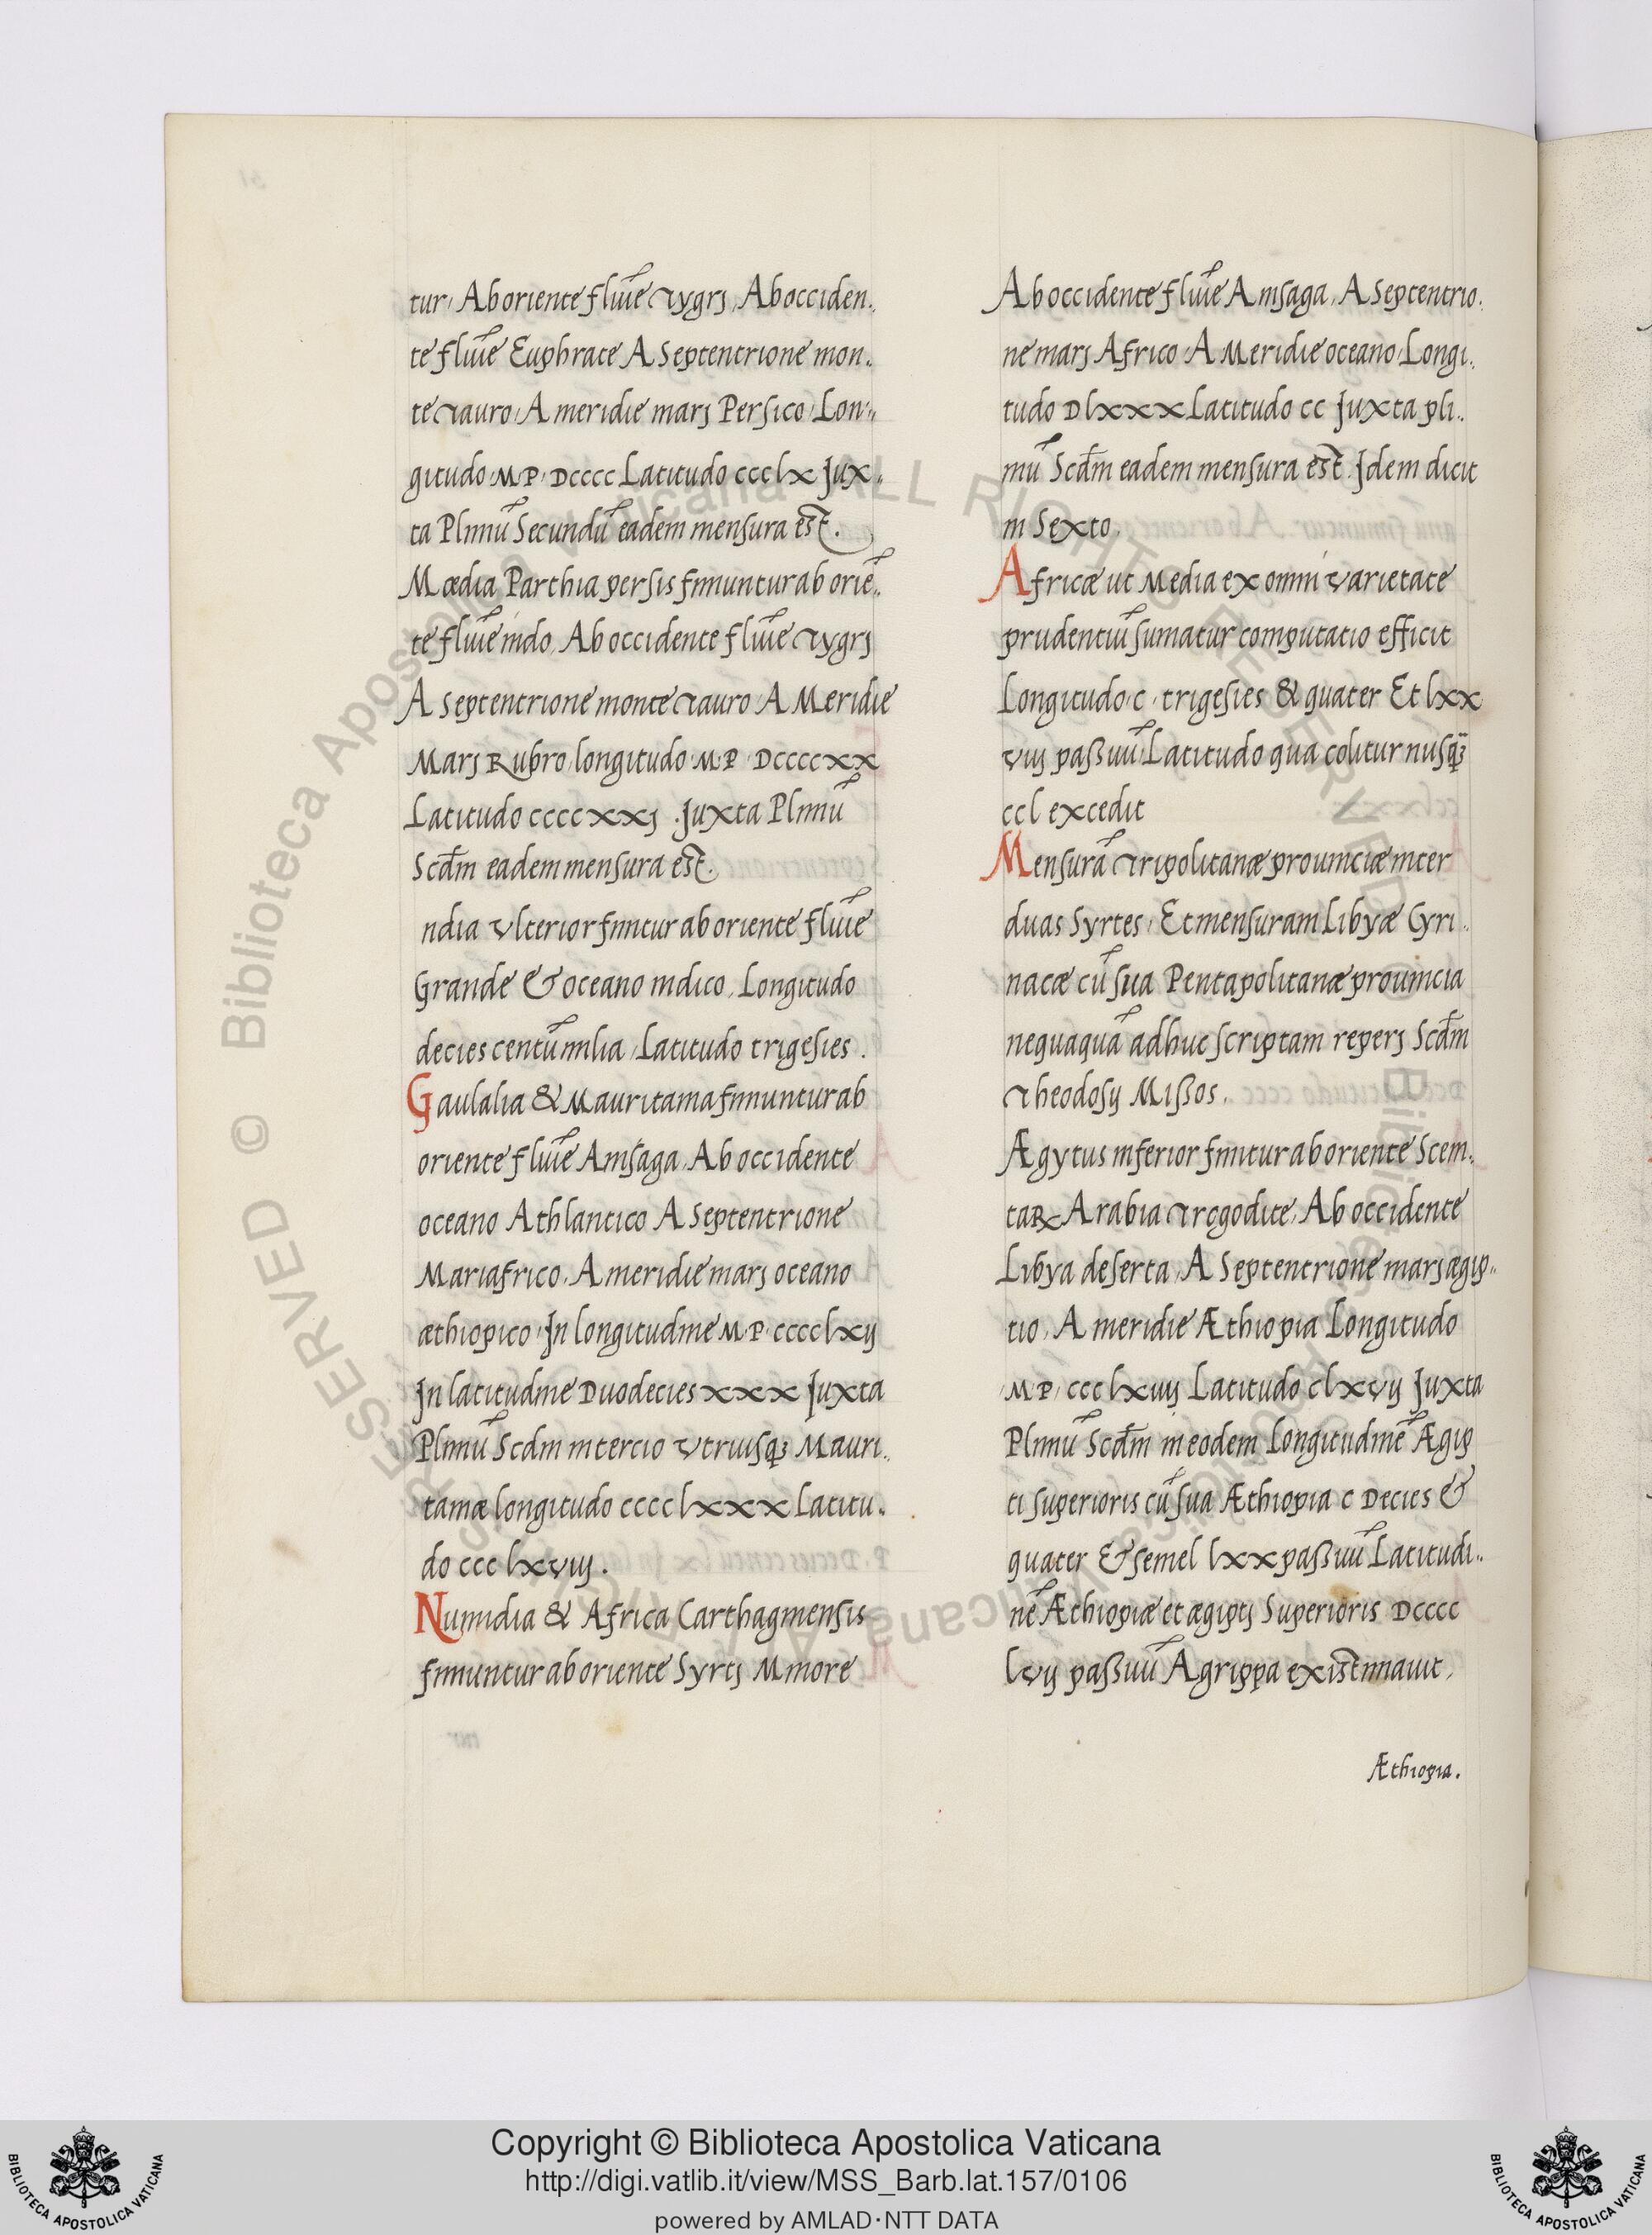 tur, Ab oriente fluĩe Tygrj, Ab occiden.
te fluĩe Euphrate A Septentrione mon.
te Tauro, A meridie marj Persico, Lon.
gitudo M P DCCCC Latitudo ccclx Jux.
ta Pliniũ Secundũ eadem mensura est.
Mædia Parthia persis finiuntur ab oriẽ.
te fluĩe indo, Ab occidente fluĩe Tygrj
A septentrione monte Tauro A Meridie
Marj Rubro longitudo M P DCCCCXX
Latitudo ccccxxj . Juxta Pliniũ
Scd̃m eadem mensura est.
ndia Vlterior finitur ab oriente fluĩe
Grande & oceano indico, Longitudo
decies centũ milia, Latitudo trigesies .
Gaulalia & Mauritania finiuntur ab
oriente fluĩe Amsaga, Ab occidente
oceano Athlantico A Septentrione
Mariafrico, A meridie marj oceano
æthiopico, Jn longitudine M P cccclxij
Jn latitudine Duodecies xxx Juxta
Pliniũ Scdm in tercio Vtriusq; Mauri.
taniæ longitudo cccclxxx Latitu.
do ccclxviij .
Numidia & Africa Carthaginensis
finiuntur ab oriente Syrtj Minore
Ab occidente fluĩe Amsaga, A Septentrio.
ne marj Africo A Meridie oceano Longi.
tudo Dlxxx Latitudo cc Juxta pli.
niũ Scd̃m eadem mensura est. Jdem dicit
in Sexto,
Africæ ut Media ex omni varietate
prudentiũ sumatur computatio efficit
Longitudo c trigesies & quater Et lxx
viij paßuũ Latitudo qua colitur nusq̃;
ccl excedit
Mensurã Tripolitanæ prouinciæ inter
duas Syrtes, Et mensuram Libyæ Cyri.
nacæ cũ sua Pentapolitanæ prouincia
nequaquã adhuc scriptam reperj Scd̃m
Theodosij Mißos.
Ægytus inferior finitur ab oriente Scem.
taꝝ Arabia Trogodite, Ab occidente
Libya deserta, A Septentrione marj ægip.
tio, A meridie Æthiopia Longitudo
M P ccclxiiij Latitudo clxvij Juxta
Pliniũ Scd̃m in eodem Longitudinẽ Ægip
ti superioris cũ sua Æthiopia c Decies &
quater & semel lxx paßuũ Latitudi.
nẽ Æthiopiæ et ægiptj Superioris DCCCC
lvij paßuũ Agrippa existimauit,
Æthiopia.
Copyright © Biblioteca Apostolica Vaticana
http://digi.vatlib.it/view/MSS_Barb.lat.157/0106
powered by AMLAD·NTT DATA
BIBLIOTECA APOSTOLICA VATICANA
BIBLIOTECA APOSTOLICA VATICANA